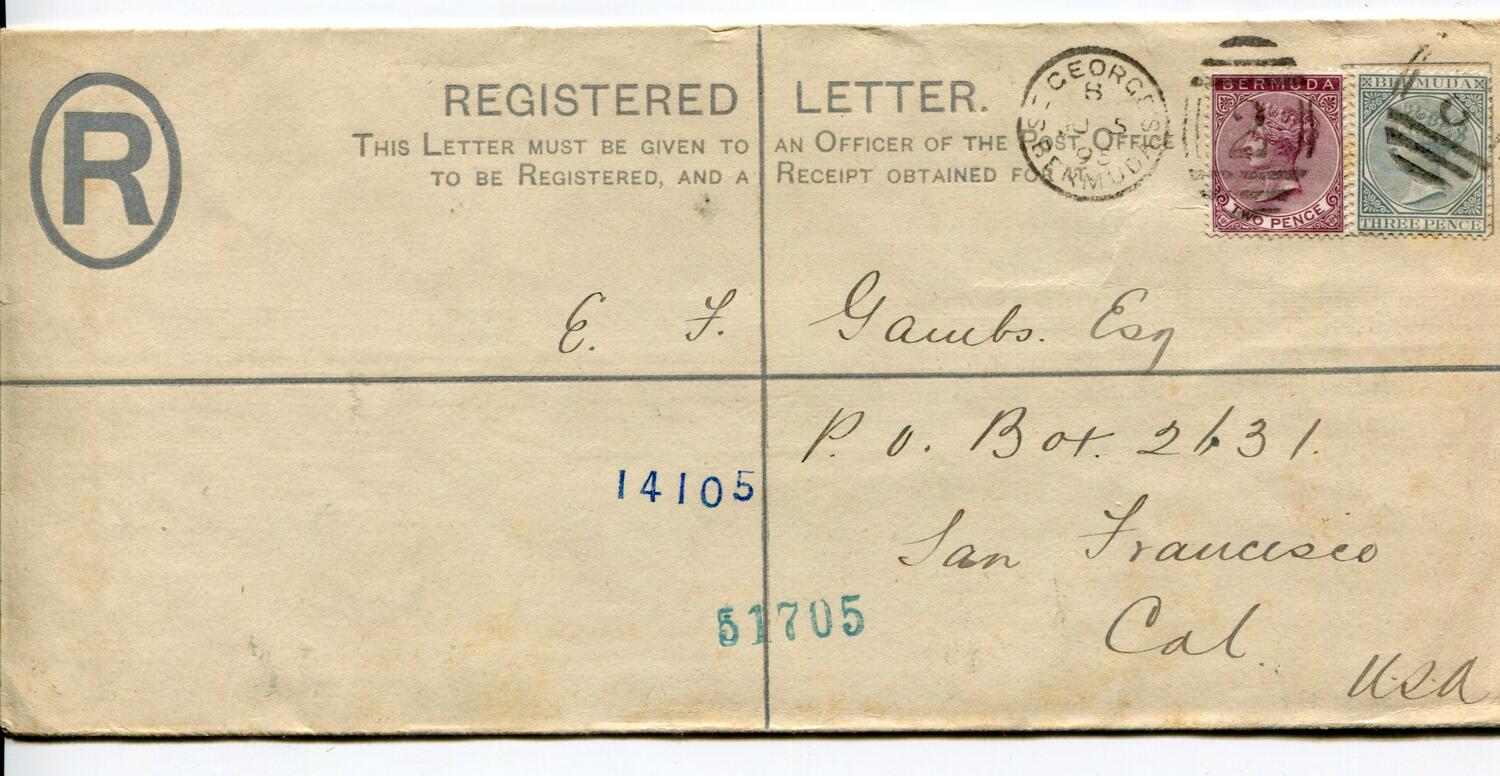 R
REGISTERED LETTER.
THIS LETTER MUST BE GIVEN TO AN OFFICER OF THE POST OFFICE
TO BE REGISTERED, AND A RECEIPT OBTAINED FOR IT.
ST GEORGES
8
5
95
BERMUDA
BERMUDA
TWO PENCE
BERMUDA
THREE PENCE
E. F. Gambs. Esq
P. O. Box. 2631.
San Francisco
Cal.
USA
14105
51705